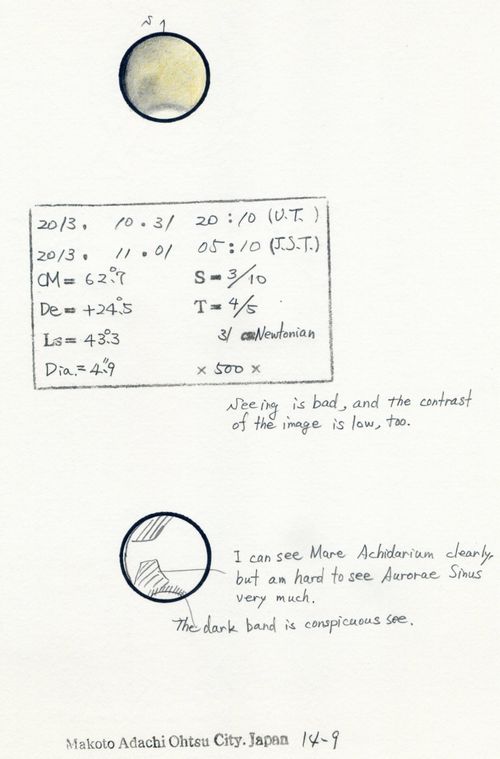 S
2013. 10.31 20:10 (U.T.)
2013. 11.01 05:10 (J.S.T.)
CM = 62.°7 S = 3/10
De = +24.°5 T = 4/5
Ls = 43.°3 31 cm Newtonian
Dia. = 4."9 × 500 ×
Seeing is bad, and the contrast
of the image is low, too.
I can see Mare Achidarium clearly,
but am hard to see Aurorae Sinus
very much.
The dark band is conspicuous see.
Makoto Adachi Ohtsu City. Japan 14-9